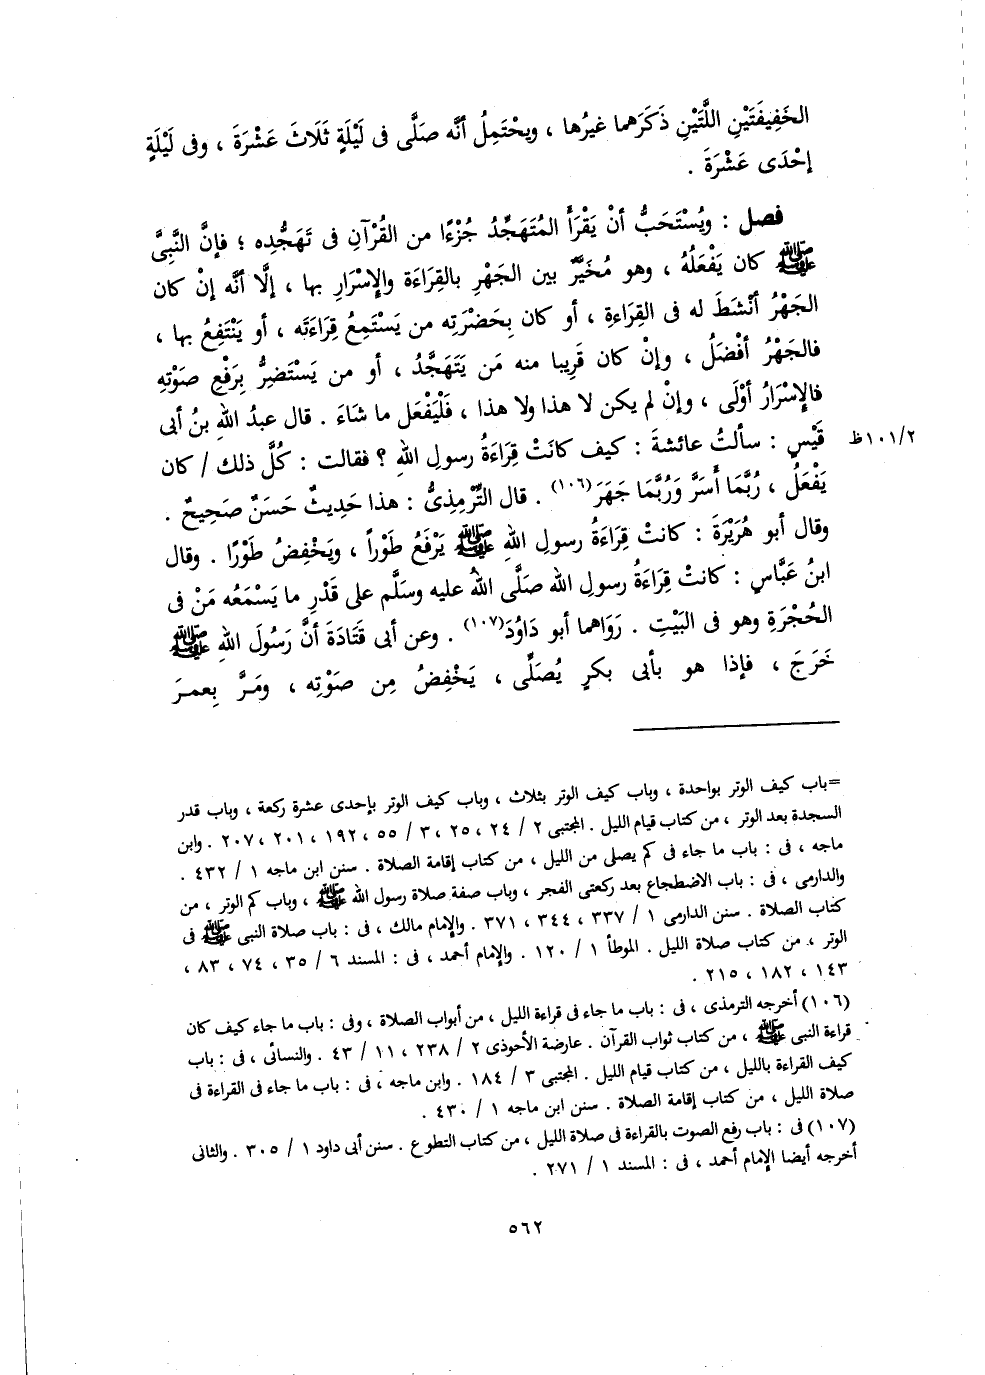 الخَفِيفَتَيْنِ اللَّتَيْنِ ذَكَرَهما غيرُها ، ويحْتَمِلُ أنَّه صَلَّى فى لَيْلَةٍ ثَلَاثَ عَشْرَةَ ، وفى لَيْلَةٍ
إحْدَى عَشْرَةَ .
فصل : ويُسْتَحَبُّ أنْ يَقْرَأَ المُتَهَجِّدُ جُزْءًا من القُرْآنِ فى تَهَجُّدِه ؛ فإنَّ النَّبِىَّ
ﷺ كان يَفْعَلُهُ ، وهو مُخَيَّرٌ بين الجَهْرِ بالقِرَاءَة والإِسْرَارِ بها ، إلَّا أنَّه إنْ كان
الجَهْرُ أنْشَطَ له فى القِرَاءةِ ، أو كان بِحَضْرَتِه من يَسْتَمِعُ قِرَاءَتَه ، أو يَنْتَفِعُ بها ،
فالجَهْرُ أفْضَلُ ، وإنْ كان قَرِيبا منه مَن يَتَهَجَّدُ ، أو من يَسْتَضِرُّ بِرَفْعِ صَوْتِهِ
فالإِسْرَارُ أوْلَى ، وإنْ لم يكن لا هذا ولا هذا ، فَلْيَفْعَل ما شَاءَ . قال عبدُ اللهِ بنُ أبى
قَيْسٍ : سألتُ عائشةَ : كيف كانَتْ قِرَاءَةُ رسولِ اللهِ ؟ فقالت : كُلَّ ذلك / كان ٢/١٠١ظ
يَفْعَلُ ، رُبَّمَا أَسَرَّ وَرُبَّمَا جَهَرَ(١٠٦) . قال التِّرْمِذِىُّ : هذا حَدِيثٌ حَسَنٌ صَحِيحٌ .
وقال أبو هُرَيْرَةَ : كانتْ قِرَاءَةُ رسولِ اللهِ ﷺ يَرْفَعُ طَوْراً ، ويَخْفِضُ طَوْرًا . وقال
ابنُ عَبَّاسٍ : كانتْ قِرَاءَةُ رسولِ الله صَلَّى اللهُ عليه وسَلَّم على قَدْرِ ما يَسْمَعُه مَنْ فى
الحُجْرَةِ وهو فى البَيْتِ . رَوَاهما أبو دَاوُدَ(١٠٧) . وعن أبى قَتَادَةَ أنَّ رَسُولَ اللهِ ﷺ
خَرَجَ ، فإذا هو بأبى بكرٍ يُصَلِّى ، يَخْفِضُ مِن صَوْتِه ، ومَرَّ بِعمرَ
=باب كيف الوتر بواحدة ، وباب كيف الوتر بثلاث ، وباب كيف الوتر بإحدى عشرة ركعة ، وباب قدر
السجدة بعد الوتر ، من كتاب قيام الليل . المجتبى ٢ / ٢٤ ، ٢٥ ، ٣ / ٥٥ ، ١٩٢ ، ٢٠١ ، ٢٠٧ . وابن
ماجه ، فى : باب ما جاء فى كم يصلى من الليل ، من كتاب إقامة الصلاة . سنن ابن ماجه ١ / ٤٣٢ .
والدارمى ، فى : باب الاضطجاع بعد ركعتى الفجر ، وباب صفة صلاة رسول الله ﷺ ، وباب كم الوتر ، من
كتاب الصلاة . سنن الدارمى ١ / ٣٣٧ ، ٣٤٤ ، ٣٧١ . والإمام مالك ، فى : باب صلاة النبى ﷺ فى
الوتر ، من كتاب صلاة الليل . الموطأ ١ / ١٢٠ . والإمام أحمد ، فى : المسند ٦ / ٣٥ ، ٧٤ ، ٨٣ ،
١٤٣ ، ١٨٢ ، ٢١٥ .
(١٠٦) أخرجه الترمذى ، فى : باب ما جاء فى قراءة الليل ، من أبواب الصلاة ، وفى : باب ما جاء كيف كان
قراءة النبى ﷺ ، من كتاب ثواب القرآن . عارضة الأحوذى ٢ / ٢٣٨ ، ١١ / ٤٣ . والنسائى ، فى : باب
كيف القراءة بالليل ، من كتاب قيام الليل . المجتبى ٣ / ١٨٤ . وابن ماجه ، فى : باب ما جاء فى القراءة فى
صلاة الليل ، من كتاب إقامة الصلاة . سنن ابن ماجه ١ / ٤٣٠ .
(١٠٧) فى : باب رفع الصوت بالقراءة فى صلاة الليل ، من كتاب التطوع . سنن أبى داود ١ / ٣٠٥ . والثانى
أخرجه أيضا الإمام أحمد ، فى : المسند ١ / ٢٧١ .
٥٦٢